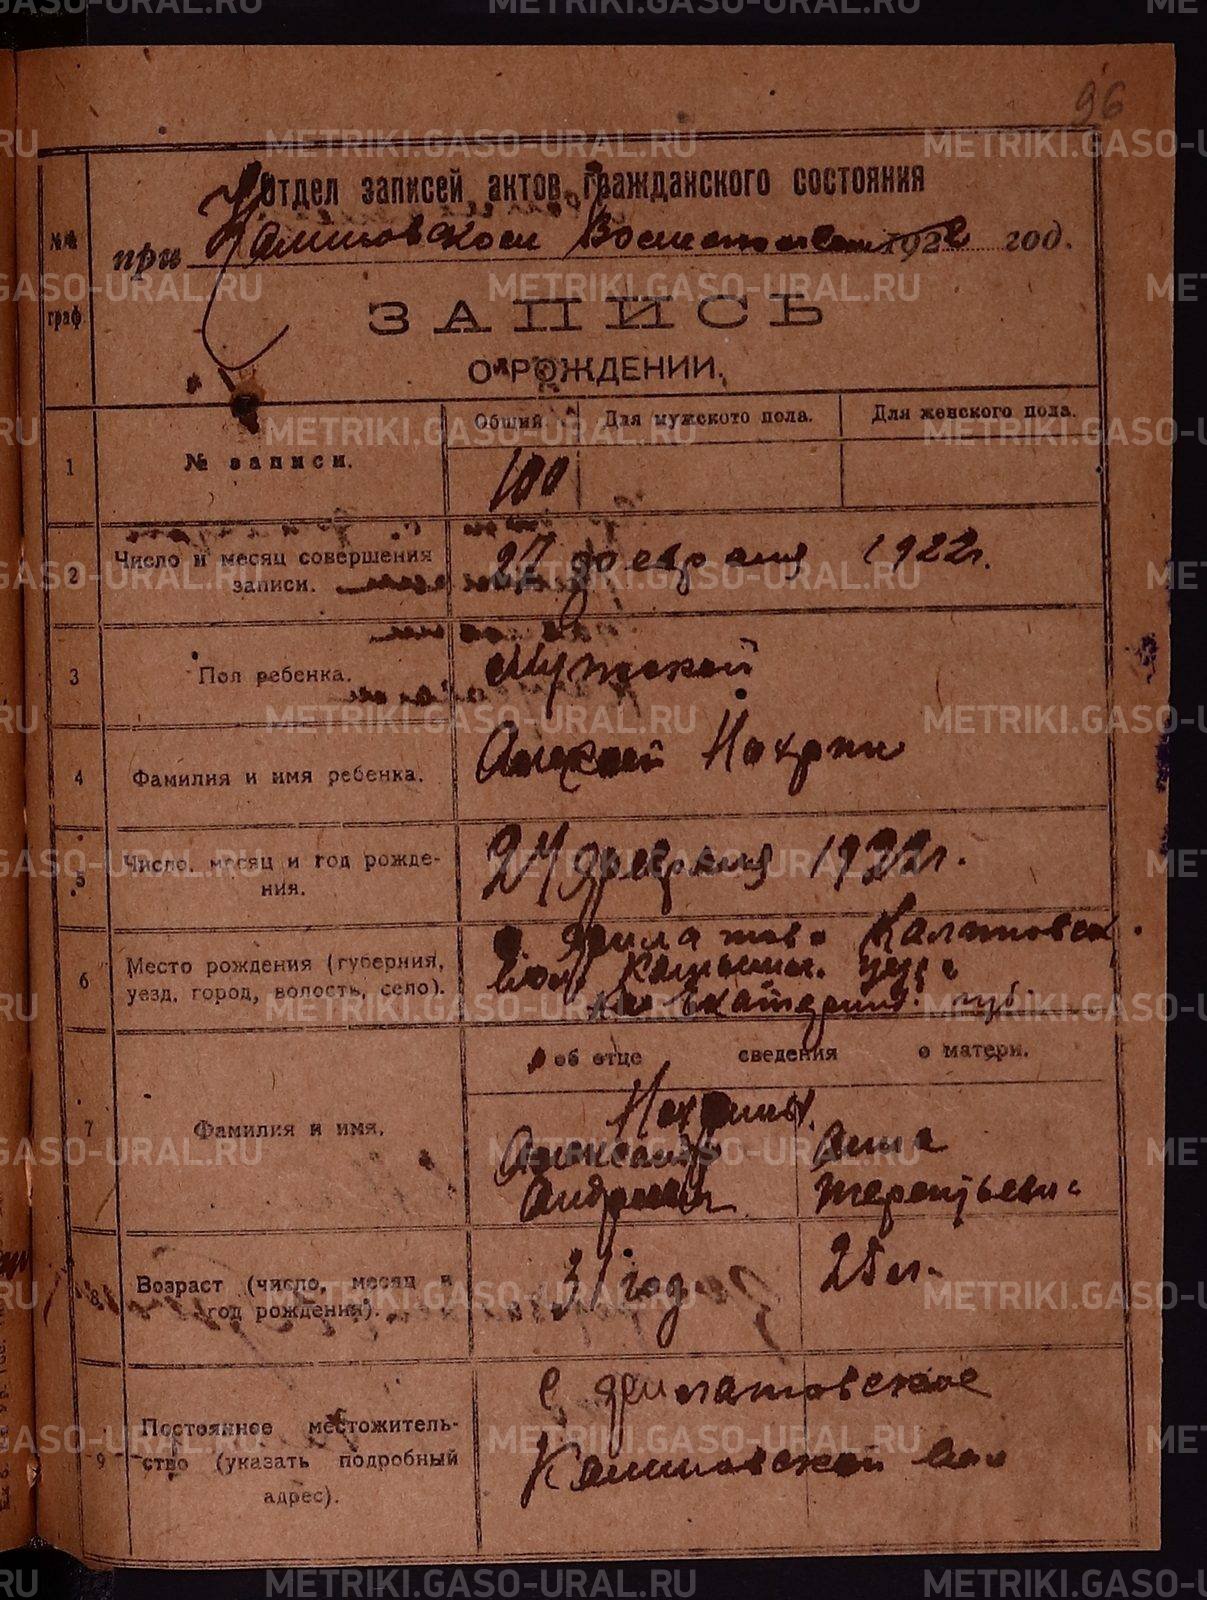 96
Отдел записей актов гражданского состояния
№№ граф.
при 1922 год.
ЗАПИСЬ
О РОЖДЕНИИ.
Общий. Для мужского пола. Для женского пола.
1 № записи. 100
2 Число и месяц совершения записи. 27 февраля 1922г.
3 Пол ребенка. Мужской
4 Фамилия и имя ребенка. Алексей Нохрин
5 Число, месяц и год рождения. 24 февраля 1922г.
6 Место рождения (губерния, уезд, город, волость, село). Филатово Калиновск.
вол. уезда
Екатеринб. губ.
об отце сведения о матери.
7 Фамилия и имя. Нохрины
Александр Анна
Терентьевна
8 Возраст (число, месяц и год рождения). 31 год 25 л.
9 Постоянное местожительство (указать подробный адрес). С Филатовское
вол
METRIKI.GASO-URAL.RU